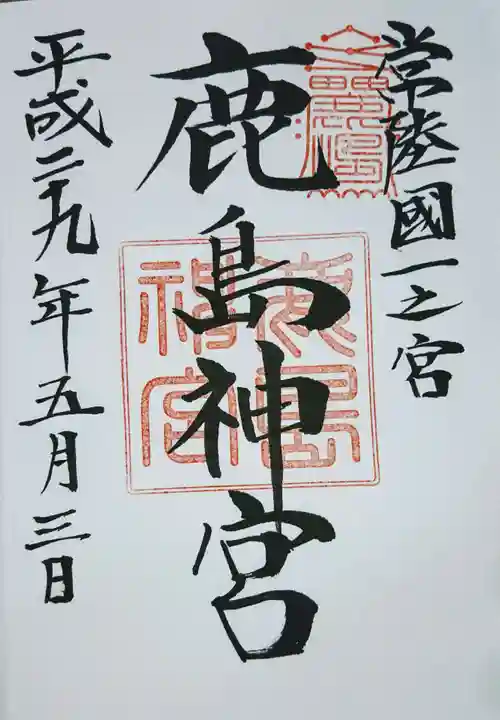 常陸國一之宮
鹿島神宮
平成二十九年五月三日
鹿島
神宮